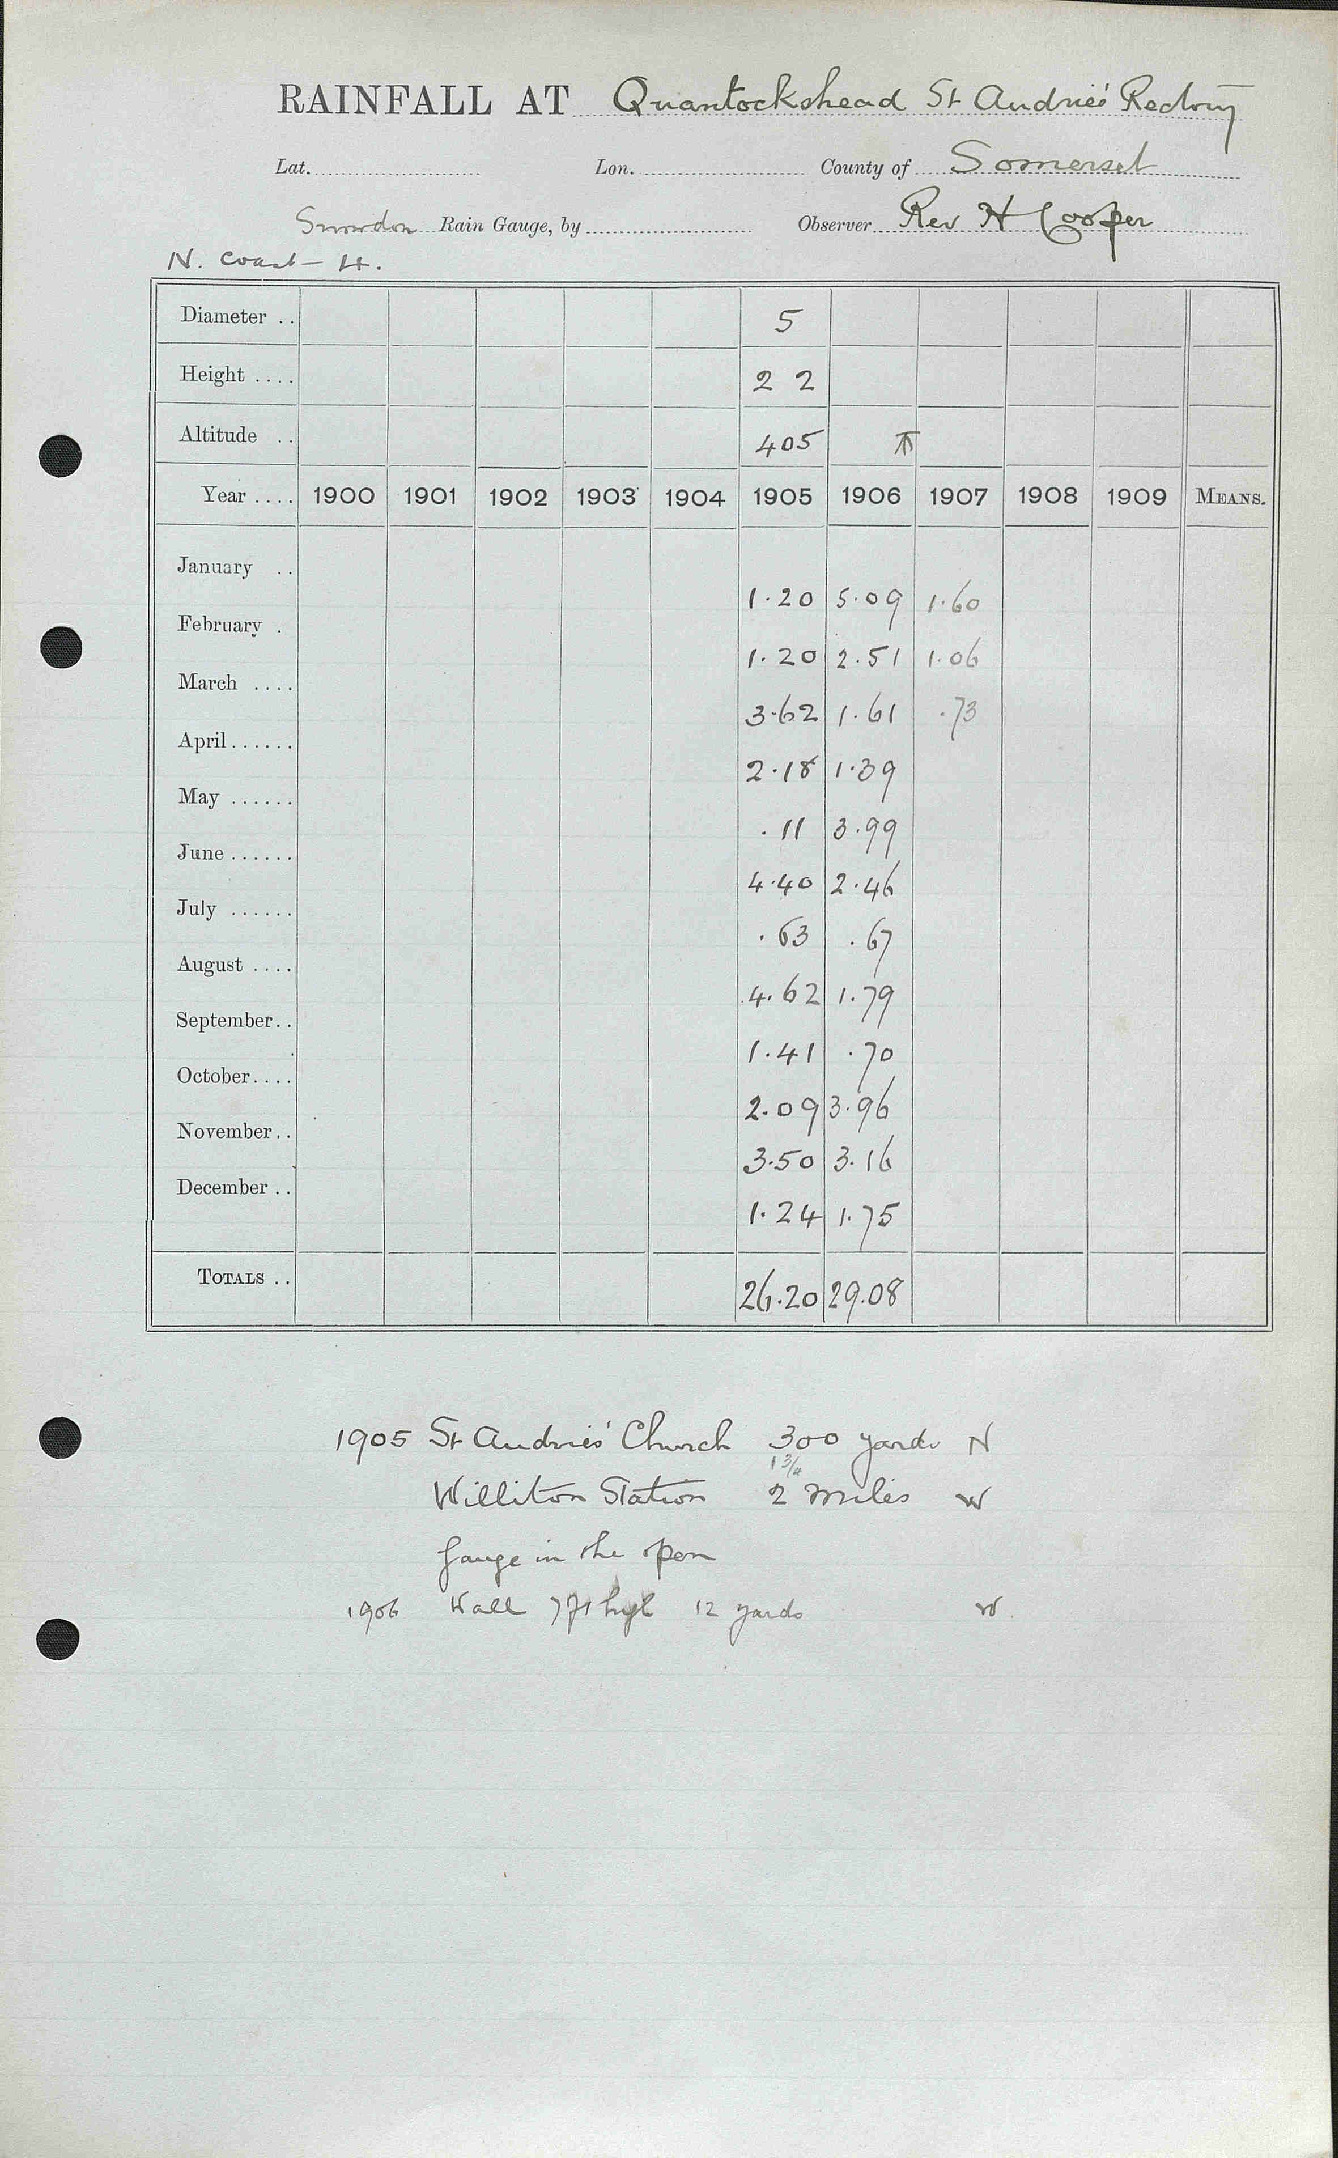 RAINFALL AT Quantockshead St Audries' Rectory
Lat. Lon. County of Somerset
Snowdon Rain Gauge, by Observer Rev H Cooper
N. Coast - H.
Diameter .. 5
Height .... 2 2
Altitude .. 405
Year .... 1900 1901 1902 1903 1904 1905 1906 1907 1908 1909 MEANS.
January .. 1.20 5.09 1.60
February . 1.20 2.51 1.06
March .... 3.62 1.61 .73
April...... 2.18 1.39
May ...... .11 3.99
June ...... 4.40 2.46
July ...... .63 .67
August .... 4.62 1.79
September.. 1.41 .70
October.... 2.09 3.96
November.. 3.50 3.16
December .. 1.24 1.75
TOTALS .. 26.20 29.08
1905 St Audries' Church 300 yards N
1 3/4
Williton Station 2 miles W
Gauge in the open
1906 Wall 7 ft high 12 yards W.